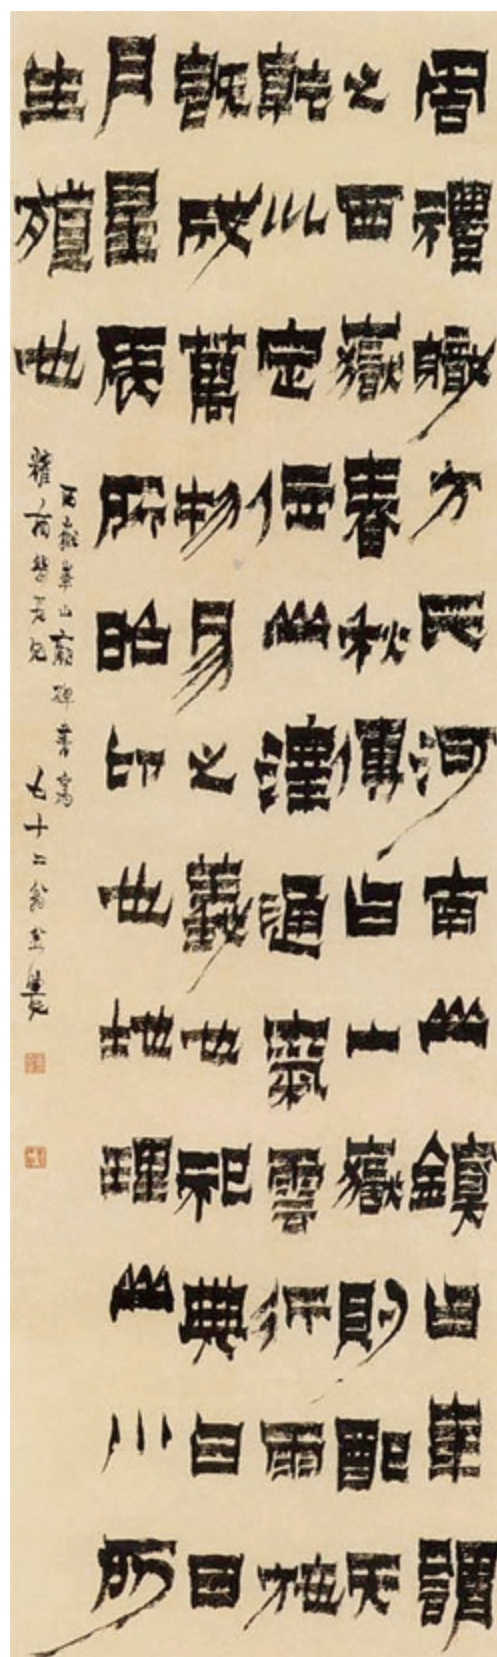 周禮職方氏河南山鎮曰華謂
之西嶽春秋傳曰山嶽則配天
乾巛定位山澤通氣雲行雨施
既成萬物易之義也祀典曰日
月星辰所昭卬也地理山川所
生殖也
西嶽華山廟碑書寫
長兄七十二翁金農